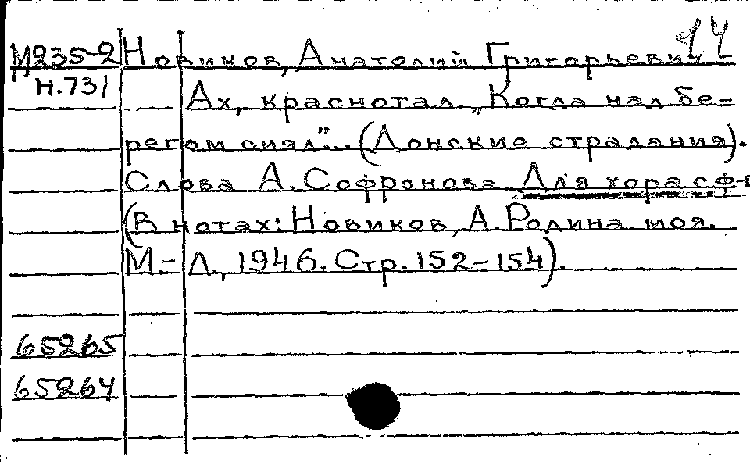 14
М235-2 Новиков, Анатолий Григорьевич
Н.731 Ах, краснотал. „Когда над бе-
регом сиял”... (Донские страдания).
Слова А. Софронова. Для хора с ф-п
(В нотах: Новиков, А. Родина моя.
М.-Л., 1946. Стр. 152-154).
65265
65264